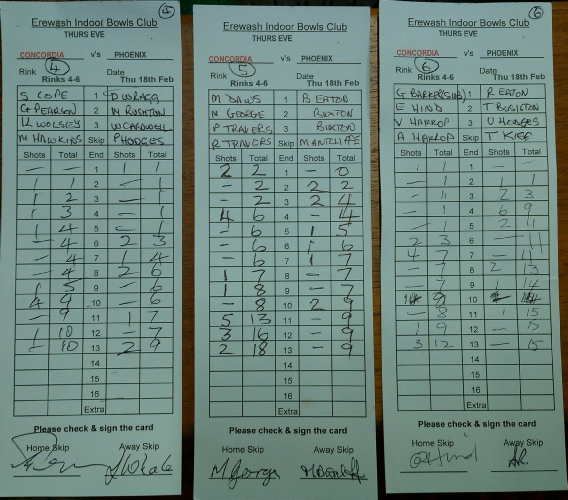 4
Erewash Indoor Bowls Club
THURS EVE
CONCORDIA v's PHOENIX
Rink 4 Date
Rinks 4-6 Thu 18th Feb
S COPE 1 D WRAGG
G PEARSON 2 M RUSHTON
K WOLSEY 3
M HAWKINS Skip P HODGES
Shots Total End Shots Total
— — 1 1 1
1 1 2 — 1
1 2 3 — 1
1 3 4 — 1
1 4 5 — 1
— 4 6 2 3
— 4 7 1 4
— 4 8 2 6
1 5 9 — 6
4 9 10 — 6
— 9 11 1 7
1 10 12 — 7
— 10 13 2 9
14
15
16
Extra
Please check & sign the card
Home Skip Away Skip
5
Erewash Indoor Bowls Club
THURS EVE
CONCORDIA v's PHOENIX
Rink 5 Date
Rinks 4-6 Thu 18th Feb
M DAWS 1 B EATON
M GEORGE 2 BUXTON
P TRAVERS 3 BUXTON
R TRAVERS Skip M ANTCLIFFE
Shots Total End Shots Total
2 2 1 — 0
— 2 2 2 2
— 2 3 2 4
4 6 4 — 4
— 6 5 1 5
— 6 6 1 6
— 6 7 1 7
1 7 8 — 7
1 8 9 — 7
— 8 10 2 9
5 13 11 — 9
3 16 12 — 9
2 18 13 — 9
14
15
16
Extra
Please check & sign the card
Home Skip Away Skip
M George
6
Erewash Indoor Bowls Club
THURS EVE
CONCORDIA v's PHOENIX
Rink 6 Date
Rinks 4-6 Thu 18th Feb
G BARKER(SUB) 1 R EATON
E HIND 2 T RUSHTON
V HARROP 3 V HODGES
A HARROP Skip T KIRK
Shots Total End Shots Total
1 1 1 — —
— 1 2 1 1
— 1 3 2 3
— 1 4 6 9
— 1 5 2 11
2 3 6 — 11
4 7 7 — 11
— 7 8 2 13
— 7 9 1 14
10
— 8 11 1 15
1 9 12 — 15
3 12 13 — 15
14
15
16
Extra
Please check & sign the card
Home Skip Away Skip